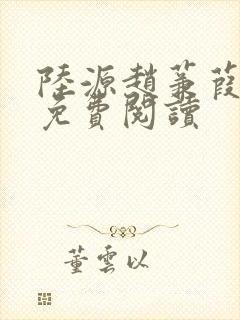 陸源趙蒹葭
免費閱讀
董雲以